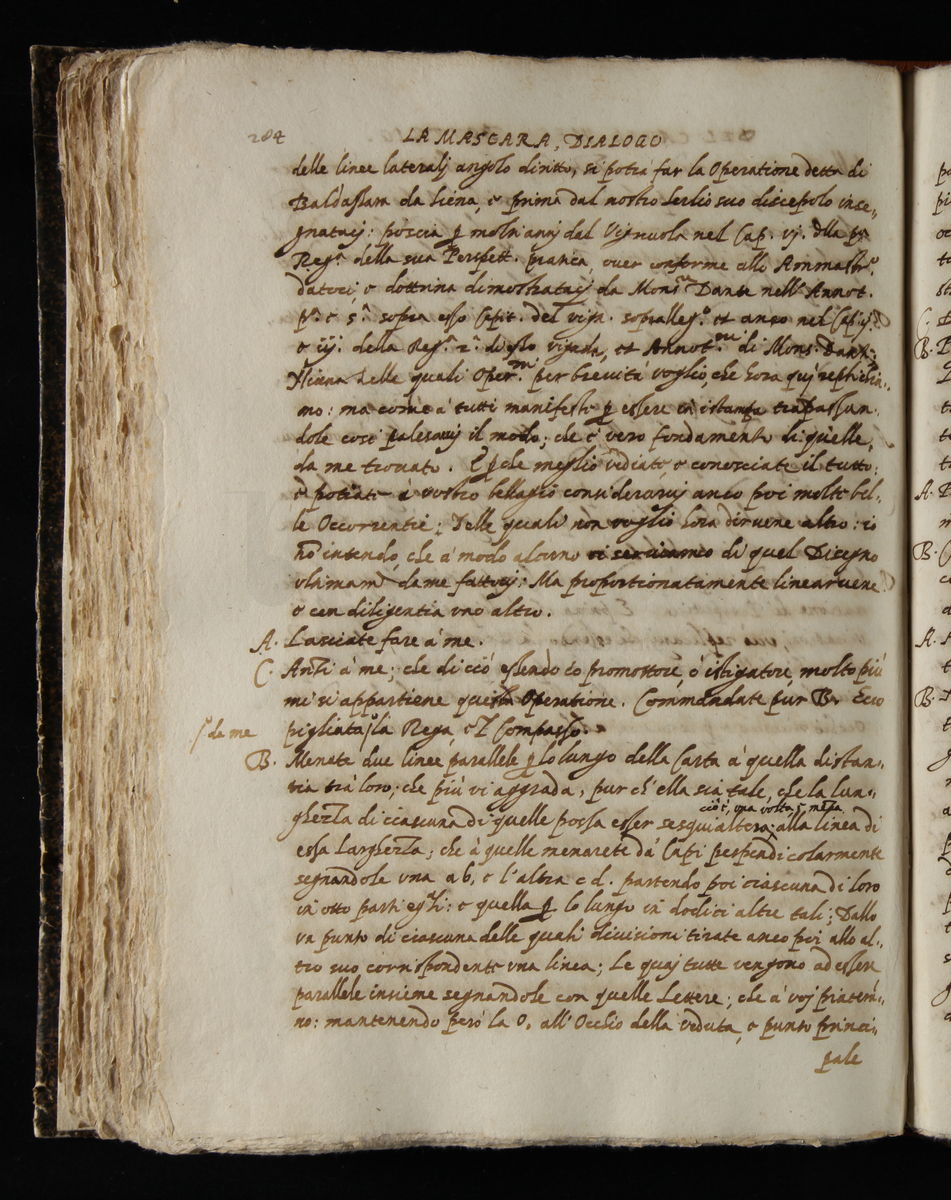 284
LA MASCARA, DIALOGO
delle linee laterali angolo diritto, si potrà far la Operatione detta di
Baldassara da Siena, e prima dal nostro Serlio suo discepolo inse-
gnataci: poscia ꝑ molti anni dal Vignuola nel Cap. vj. dlla pᵃ
Regᵃ della sua Perspett. pratica, over conforme alli Ammaestrⁱ
datoci, e dottrina dimostrataci da Monsʳ Dante nell' Annot.
pᵃ e 5ᵃ sopra esso Capit. del Vign. et anco nel Cap. iij.
e iij. della Regᵃ 2ᵃ di Monsʳ Dante;
Niuna delle quali Operⁿⁱ per brevità voglio, che hora quì replichia-
mo: ma come à tutti manifeste ꝑ essere in istampa trapassan-
dole così palesarvi il modo; che è vero fondamento di quelle,
da me trovato. E ꝑche meglio vediate e conosciate il tutto:
e potiate à vostro bellagio considerarvi anco poi molte bel-
le Occorrentie; Delle quali non voglio hora dirvene altro: io
nõ intendo, che à modo alcuno vi serviamo di quel Disegno
ultimamᵗᵉ da me fattovi: Ma proportionatamente linearvene
e con diligentia uno altro.
A. Lasciate fare à me.
C. Anzi à me; che di ciò essendo io promottore, ò istigatore, molto più
mi si appartiene questa Operatione. Commandate pur B. Ecco
pigliata la Rega, e'l Compasso.
da me
B. Menate due linee parallele ꝑ lo lungo della Carta à quella distan-
tia trà loro; che più vi aggrada, pur ch'ella sia tale, che la lun-
cioè, una volta e meza
ghezza di ciascuna di quelle possa esser sesquialtera alla linea di
essa Larghezza; che à quelle menarete da' Capi perpendicolarmente
segnandole una a b, e l'altra c d. partendo poi ciascuna di loro
in otto parti egᵃli: e quella ꝑ lo lungo in dodici altre tali; Dallo
un punto di ciascuna delle quali divisioni tirate anco poi allo al-
tro suo corrispondente una linea; Le quai tutte vengono ad essere
parallele insieme segnandole con quelle Lettere; che à voi piacerà-
no: mantenendo però la O, all'Occhio della veduta, e punto princi-
pale